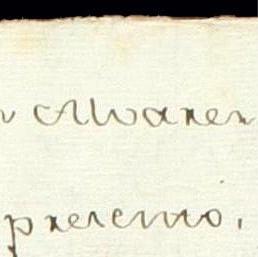 Alvarez
presento,